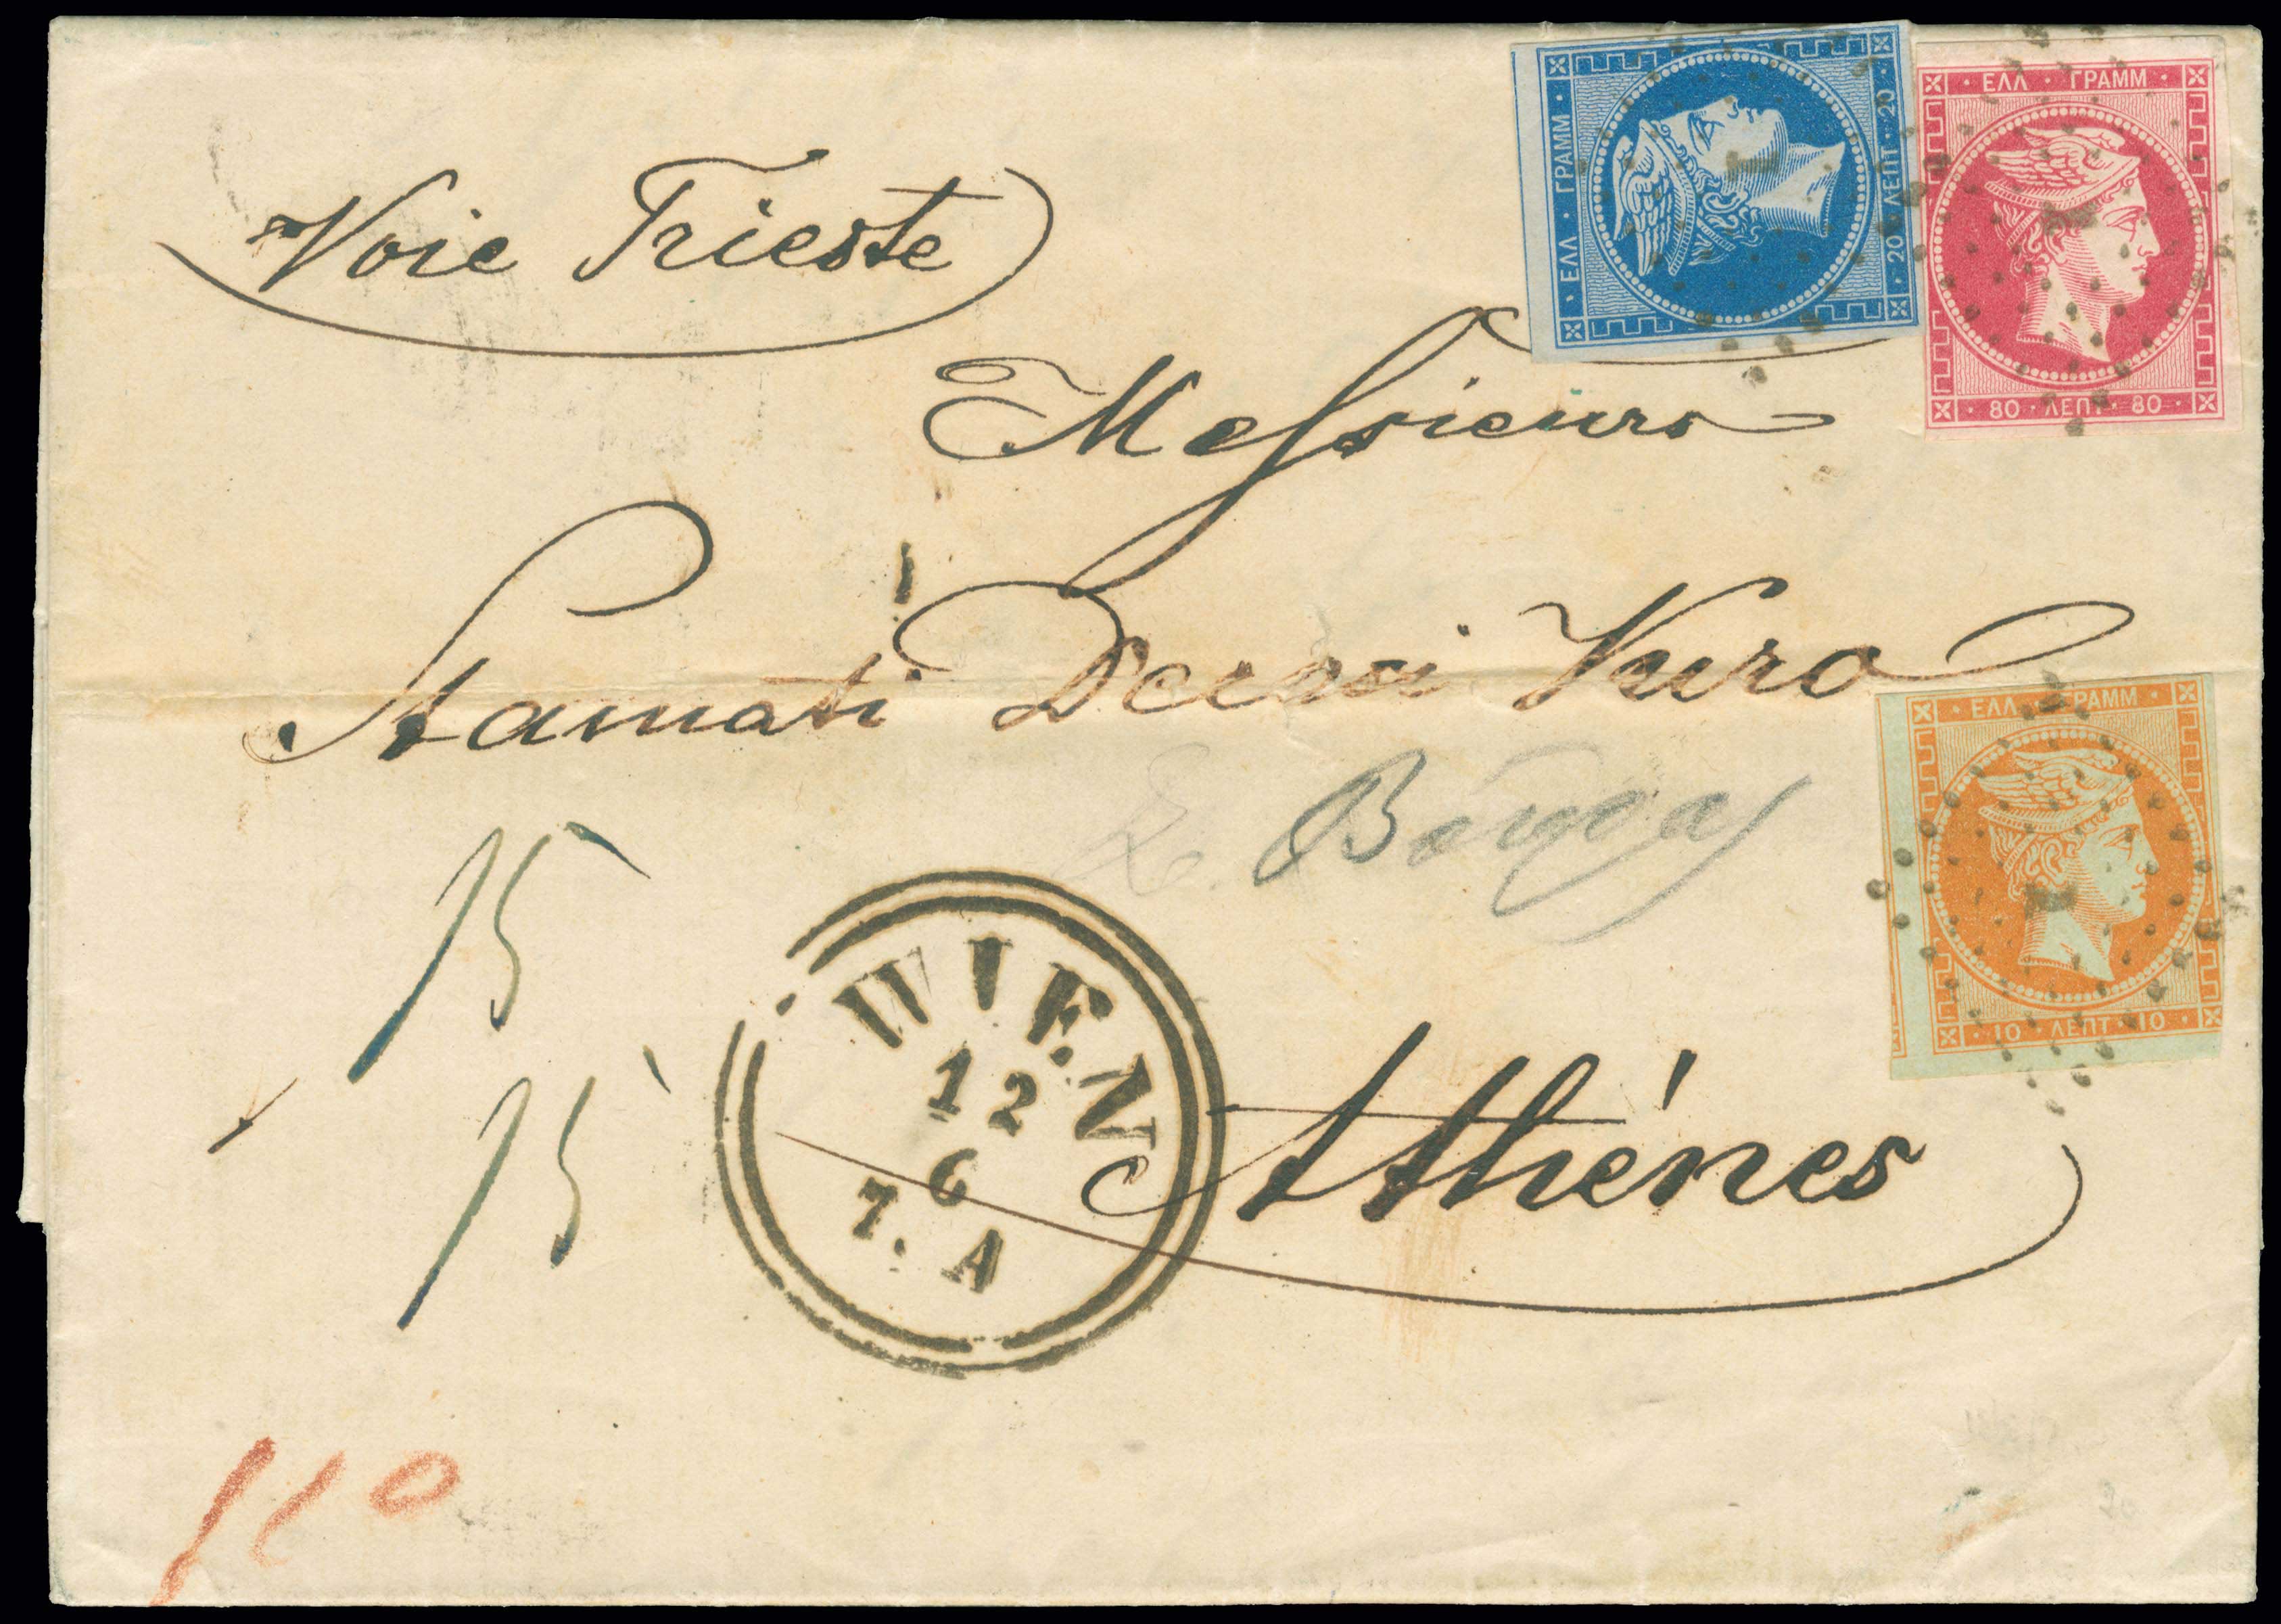 Voie Trieste
ΕΛΛ · ΓΡΑΜΜ
20 ΛΕΠΤ 20
ΕΛΛ · ΓΡΑΜΜ
80 · ΛΕΠΤ · 80
Messieurs
Stamati Decozi Vuro
ΕΛΛ · ΓΡΑΜΜ
10 · ΛΕΠΤ · 10
15
15
WIEN
12
6
7. A
Athènes